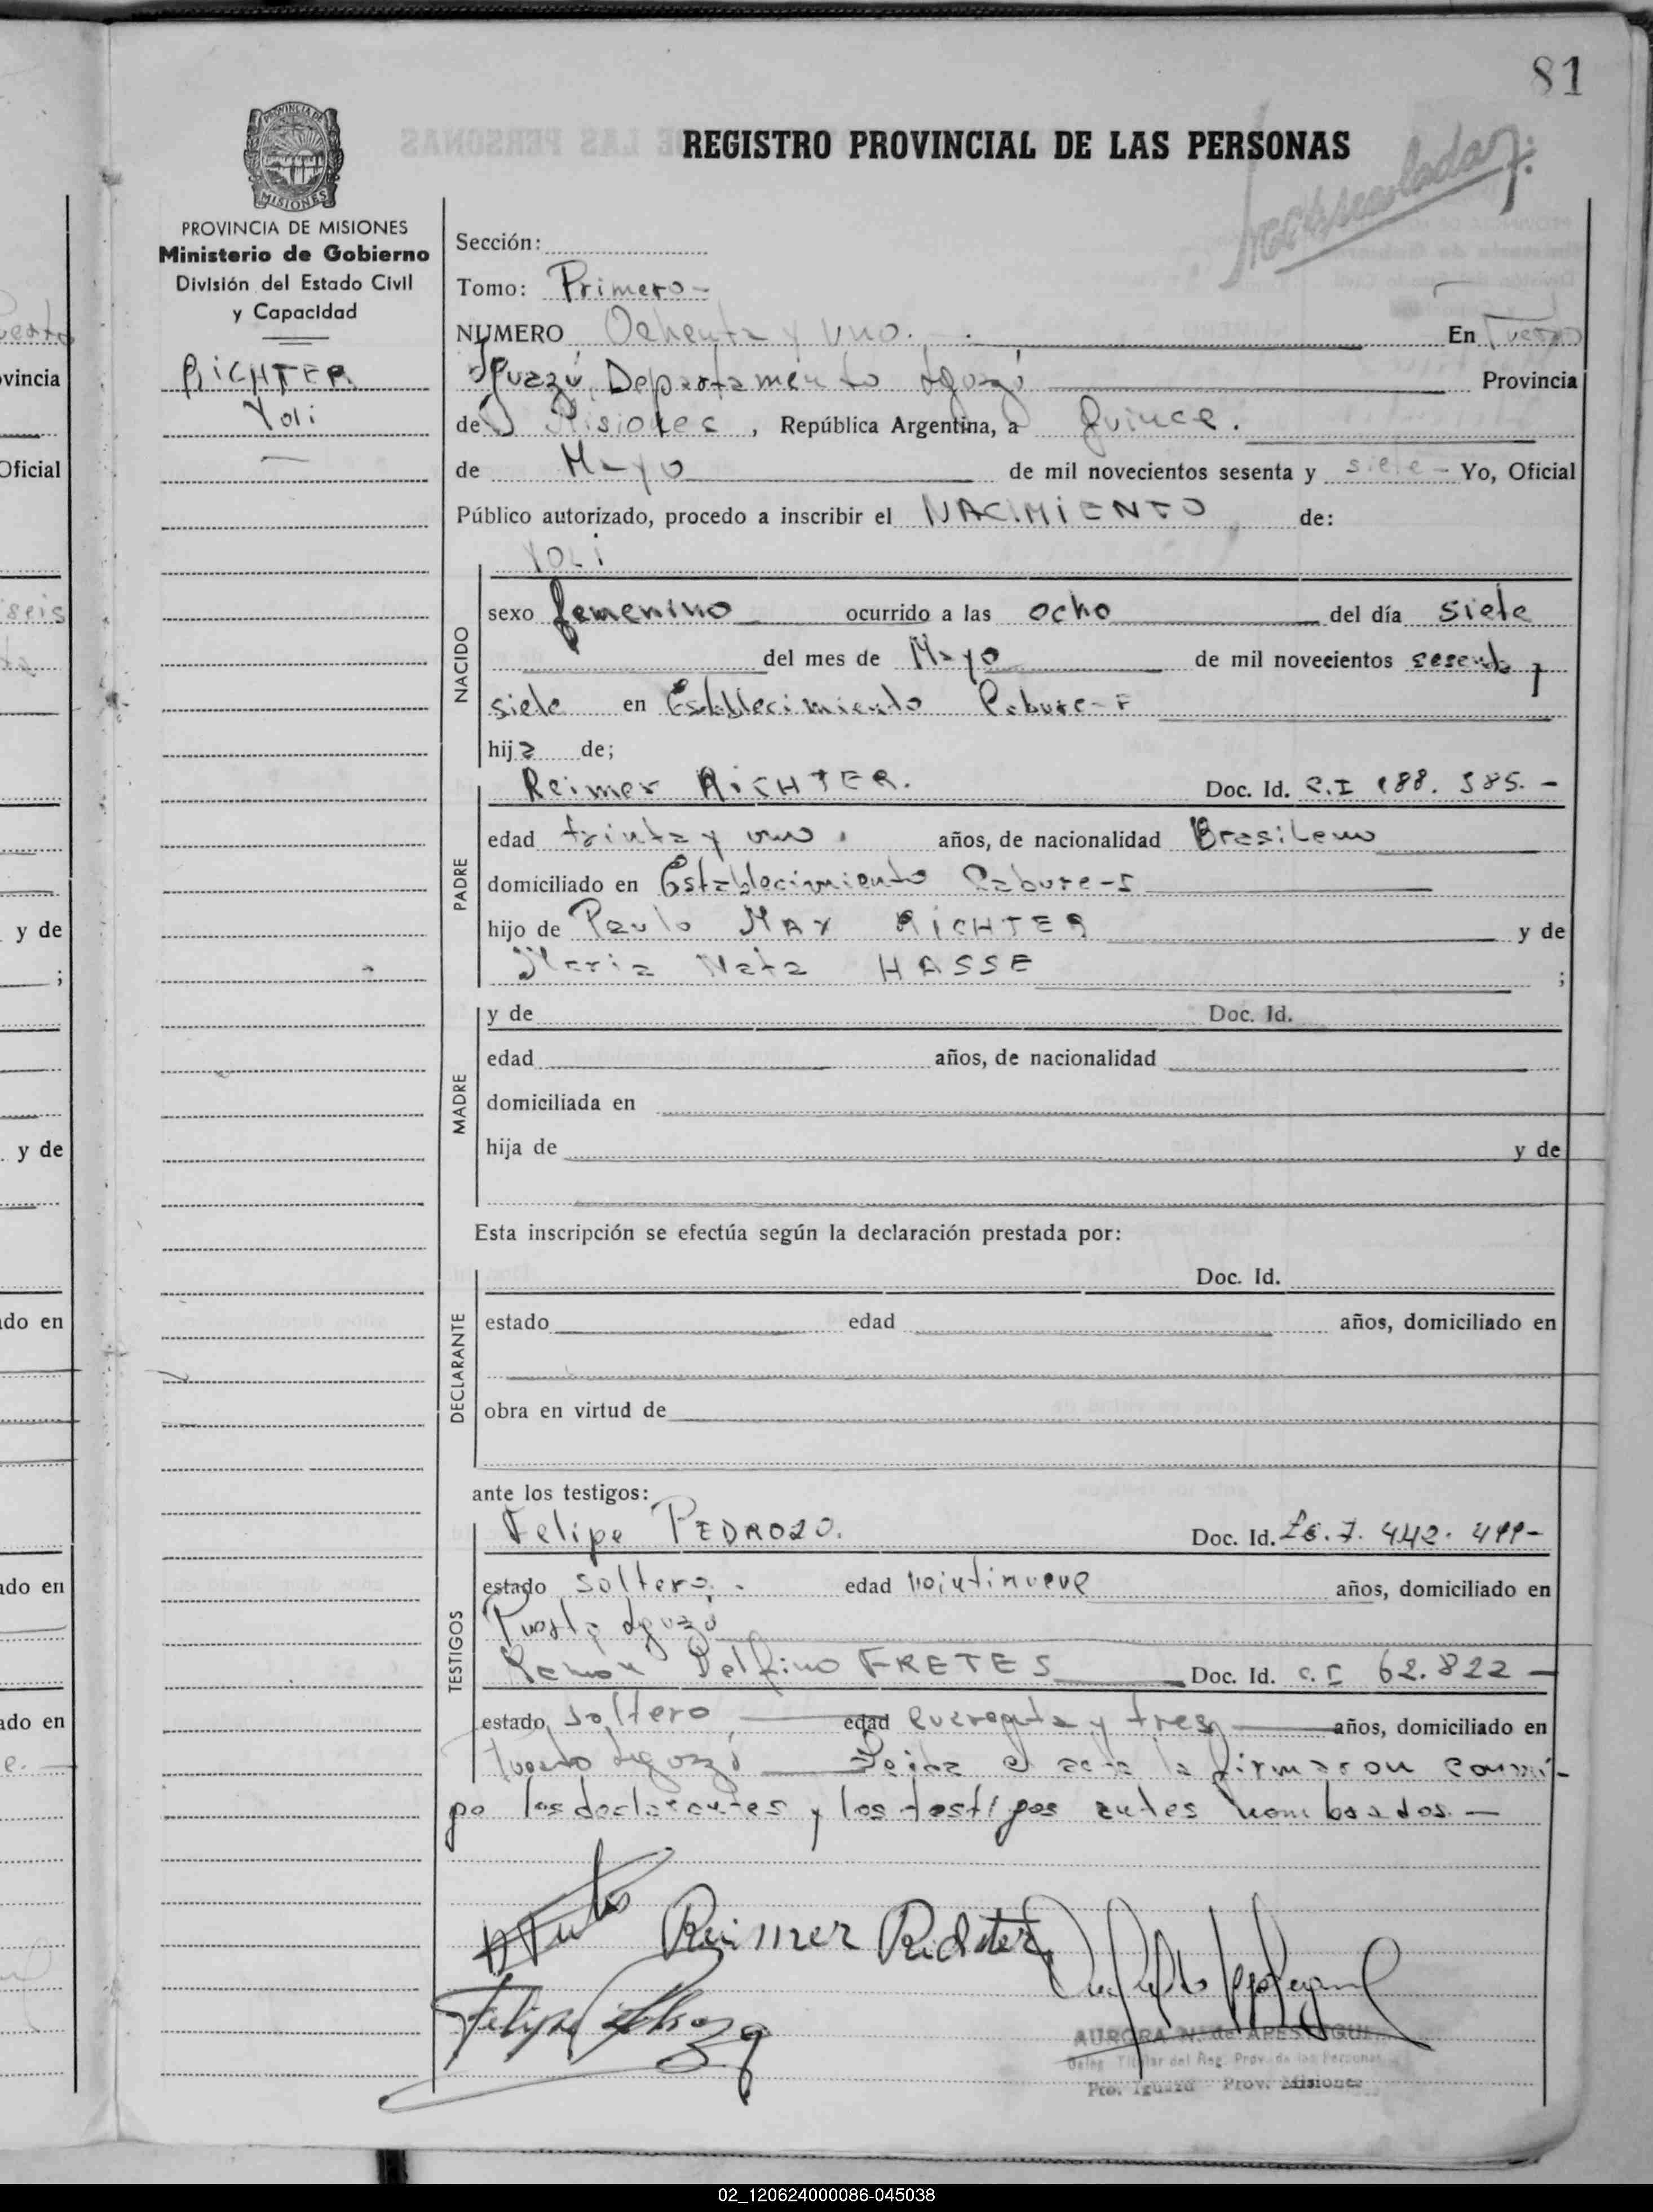 81
REGISTRO PROVINCIAL DE LAS PERSONAS
PROVINCIA DE
MISIONES
PROVINCIA DE MISIONES
Ministerio de Gobierno
División del Estado Civil
y Capacidad
RICHTER
Yoli
Sección:
Tomo: Primero-
NUMERO Ochenta y uno. En Puerto
Iguazú, Departamento Iguazú Provincia
de Misiones, República Argentina, a Quince.
de Mayo de mil novecientos sesenta y siete - Yo, Oficial
Público autorizado, procedo a inscribir el NACIMIENTO de:
YOLI
NACIDO
sexo femenino ocurrido a las ocho del día siete
del mes de Mayo de mil novecientos sesenta y
siete en Establecimiento
hija de;
PADRE
Reimer RICHTER. Doc. Id. C.I 188. 385. -
edad trinta y uno. años, de nacionalidad Brasileno
domiciliado en Establecimiento
hijo de Paulo MAX RICHTER y de
Maria Neta HASSE ;
MADRE
y de Doc. Id.
edad años, de nacionalidad
domiciliada en
hija de y de
Esta inscripción se efectúa según la declaración prestada por:
DECLARANTE
Doc. Id.
estado edad años, domiciliado en
obra en virtud de
ante los testigos:
TESTIGOS
Felipe PEDROZO. Doc. Id. 7. 442. 499-
estado soltero. edad veintinueve años, domiciliado en
Puerto Iguazú
Ramón Delfino FRETES Doc. Id. C.I 62.822 -
estado soltero edad cuarenta y tres años, domiciliado en
Puerto Iguazú Leida el acta la firmaron conmi-
go los declarantes y los testigos antes nombrados. -
Reimer Richter
AURORA N. de APESTEGUI
Deleg. Titular del Reg. Prov. de las Personas
Pto. Iguazú - Prov. Misiones
vincia
Oficial
seis
y de
;
y de
ado en
ado en
ado en
02_120624000086-045038